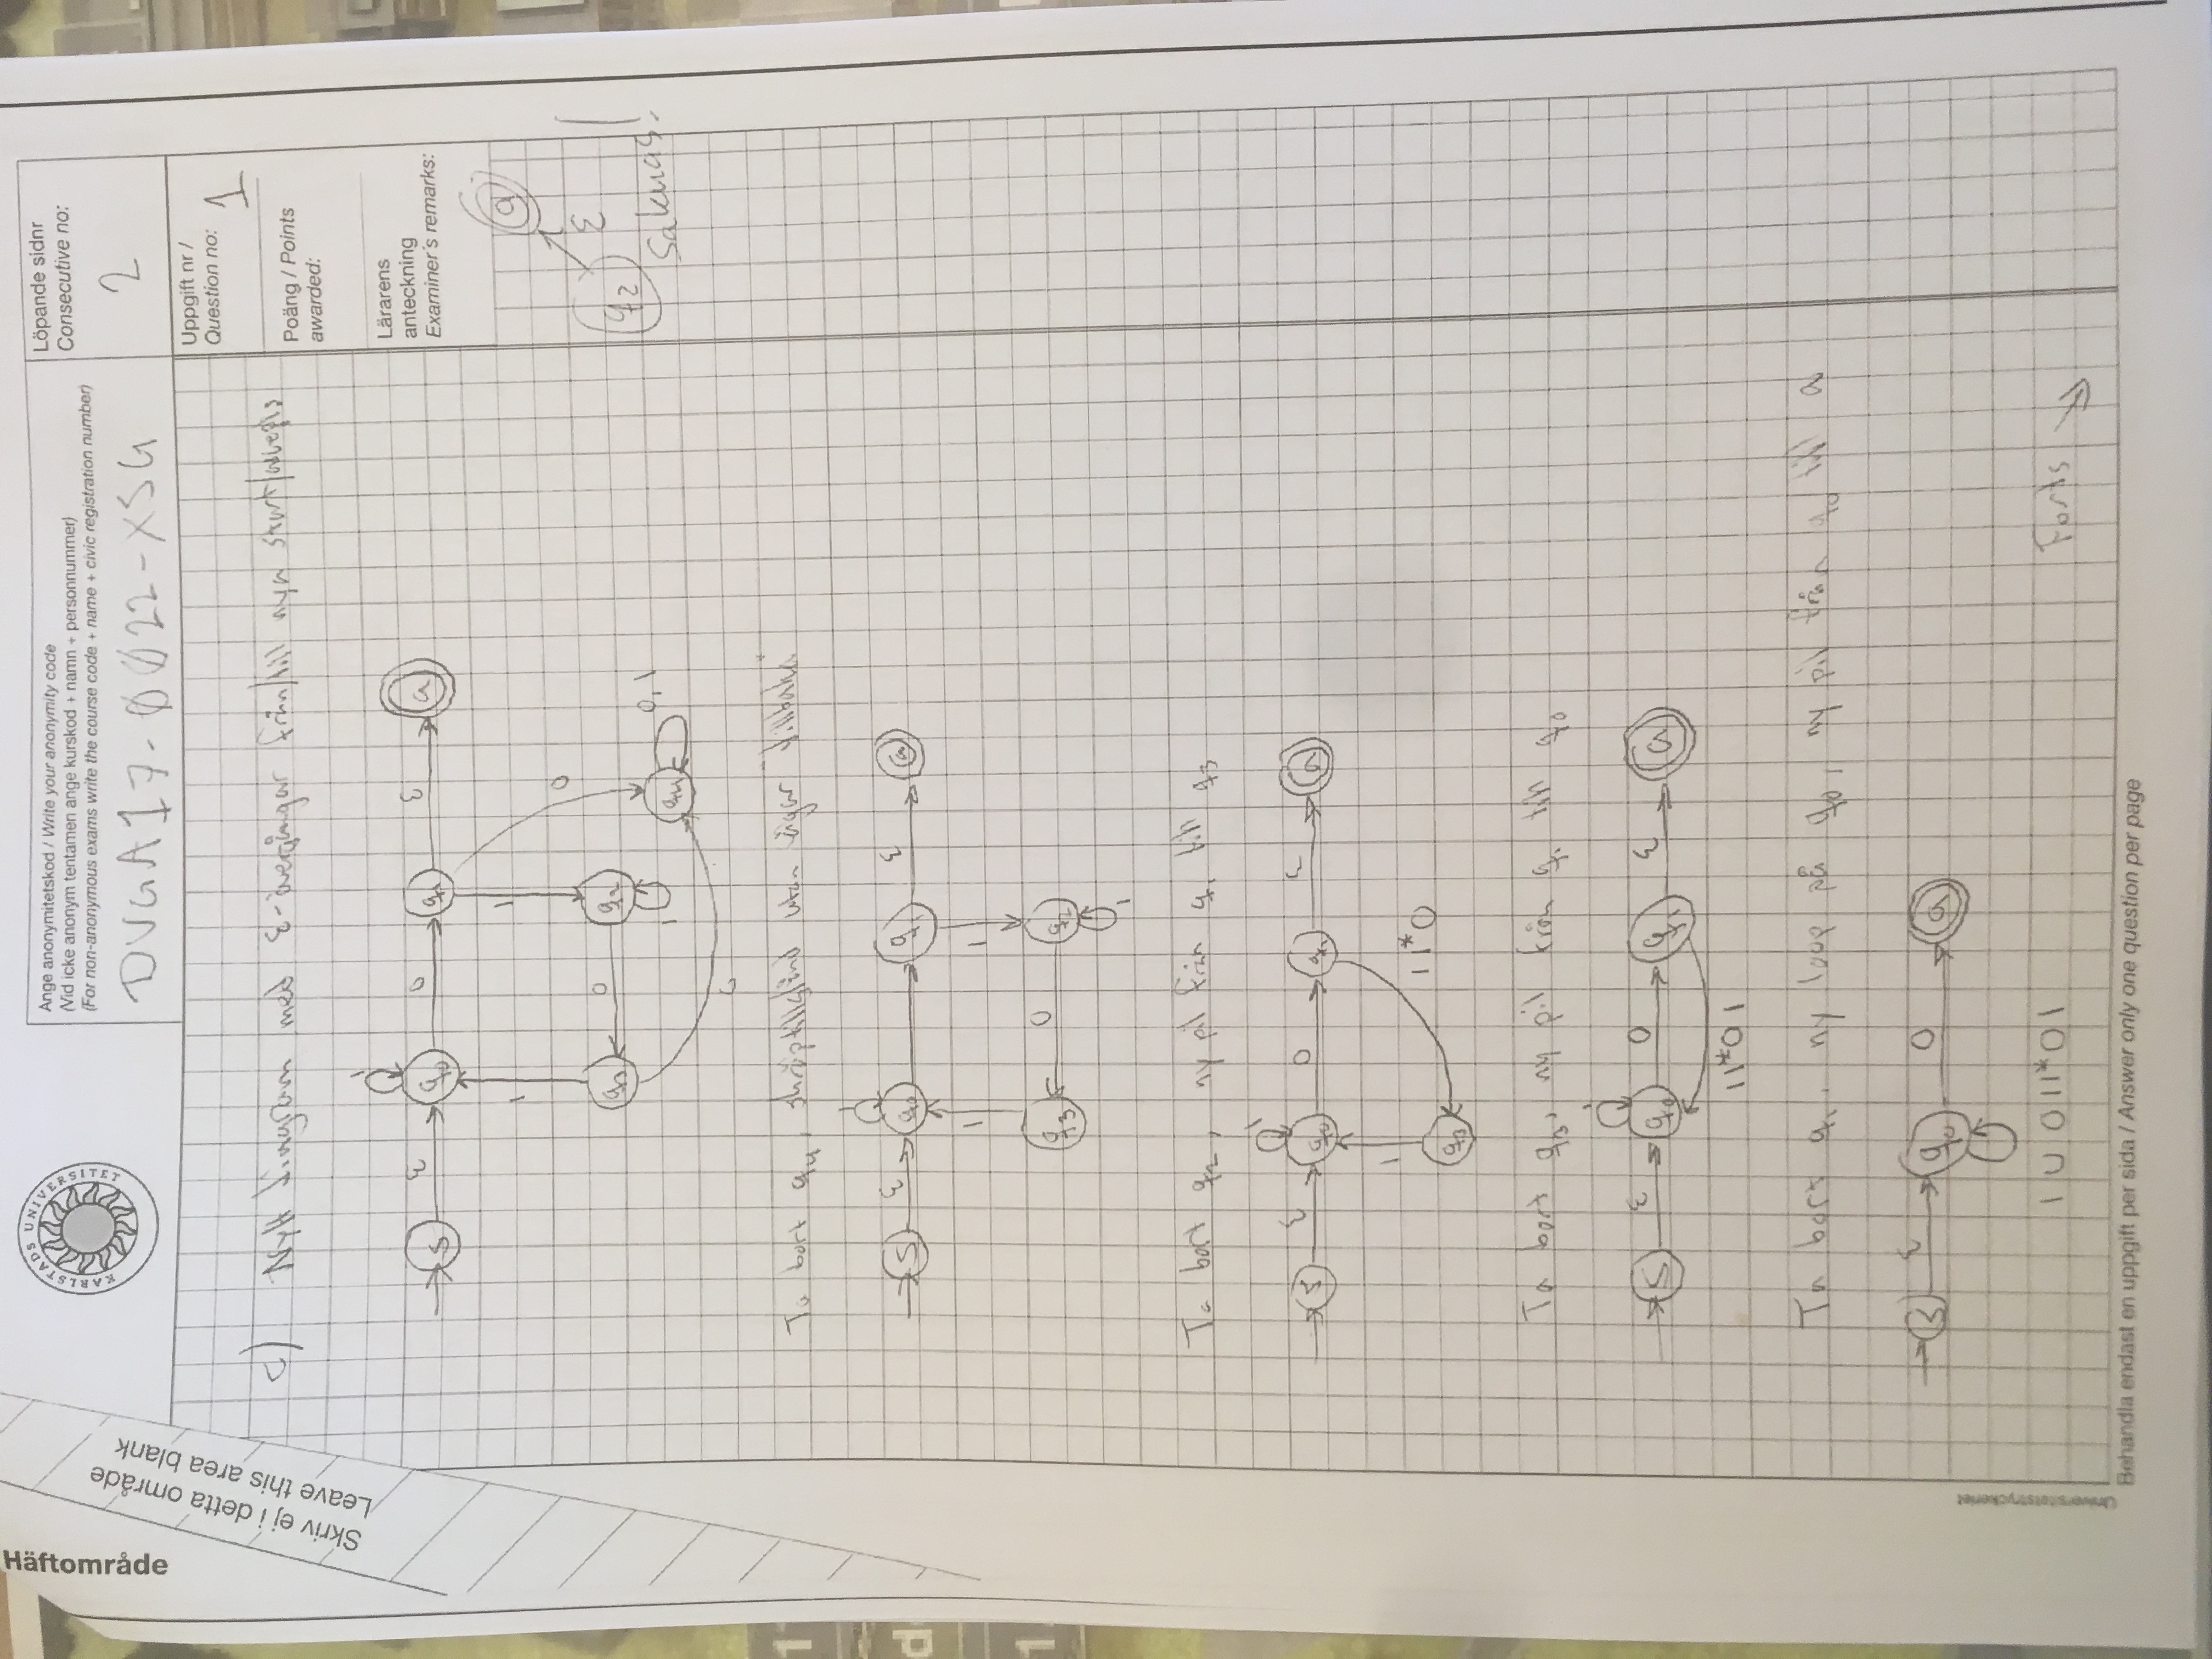 Häftområde
Skriv ej i detta område
Leave this area blank
KARLSTADS UNIVERSITET
Ange anonymitetskod / Write your anonymity code
(Vid icke anonym tentamen ange kurskod + namn + personnummer)
(For non-anonymous exams write the course code + name + civic registration number)
DVGA17-0022-XSG
Löpande sidnr
Consecutive no:
2
Uppgift nr /
Question no:
1
Poäng / Points
awarded:
Lärarens
anteckning
Examiner's remarks:
a
q2 ε
Saknas!
c) Nytt diagram med ε-övergångar från/till nya start/accept
1
s ε q0 0 q1 ε a
1 1 0
q3 0 q2
1 q4 0,1
0
Ta bort q4, skräptillstånd utan vägar "tillbaka"
1
s ε q0 q1 ε a
1 1
q3 0 q2
1
Ta bort q2, ny pil från q1 till q3
1
s ε q0 0 q1 ε a
1 11*0
q3
Ta bort q3, ny pil från q1 till q0
1
s ε q0 0 q1 ε a
11*01
Ta bort q1, ny loop på q0, ny pil från q0 till a
s ε q0 0 a
1 U 011*01
Forts
Universitetstryckeriet
Behandla endast en uppgift per sida / Answer only one question per page